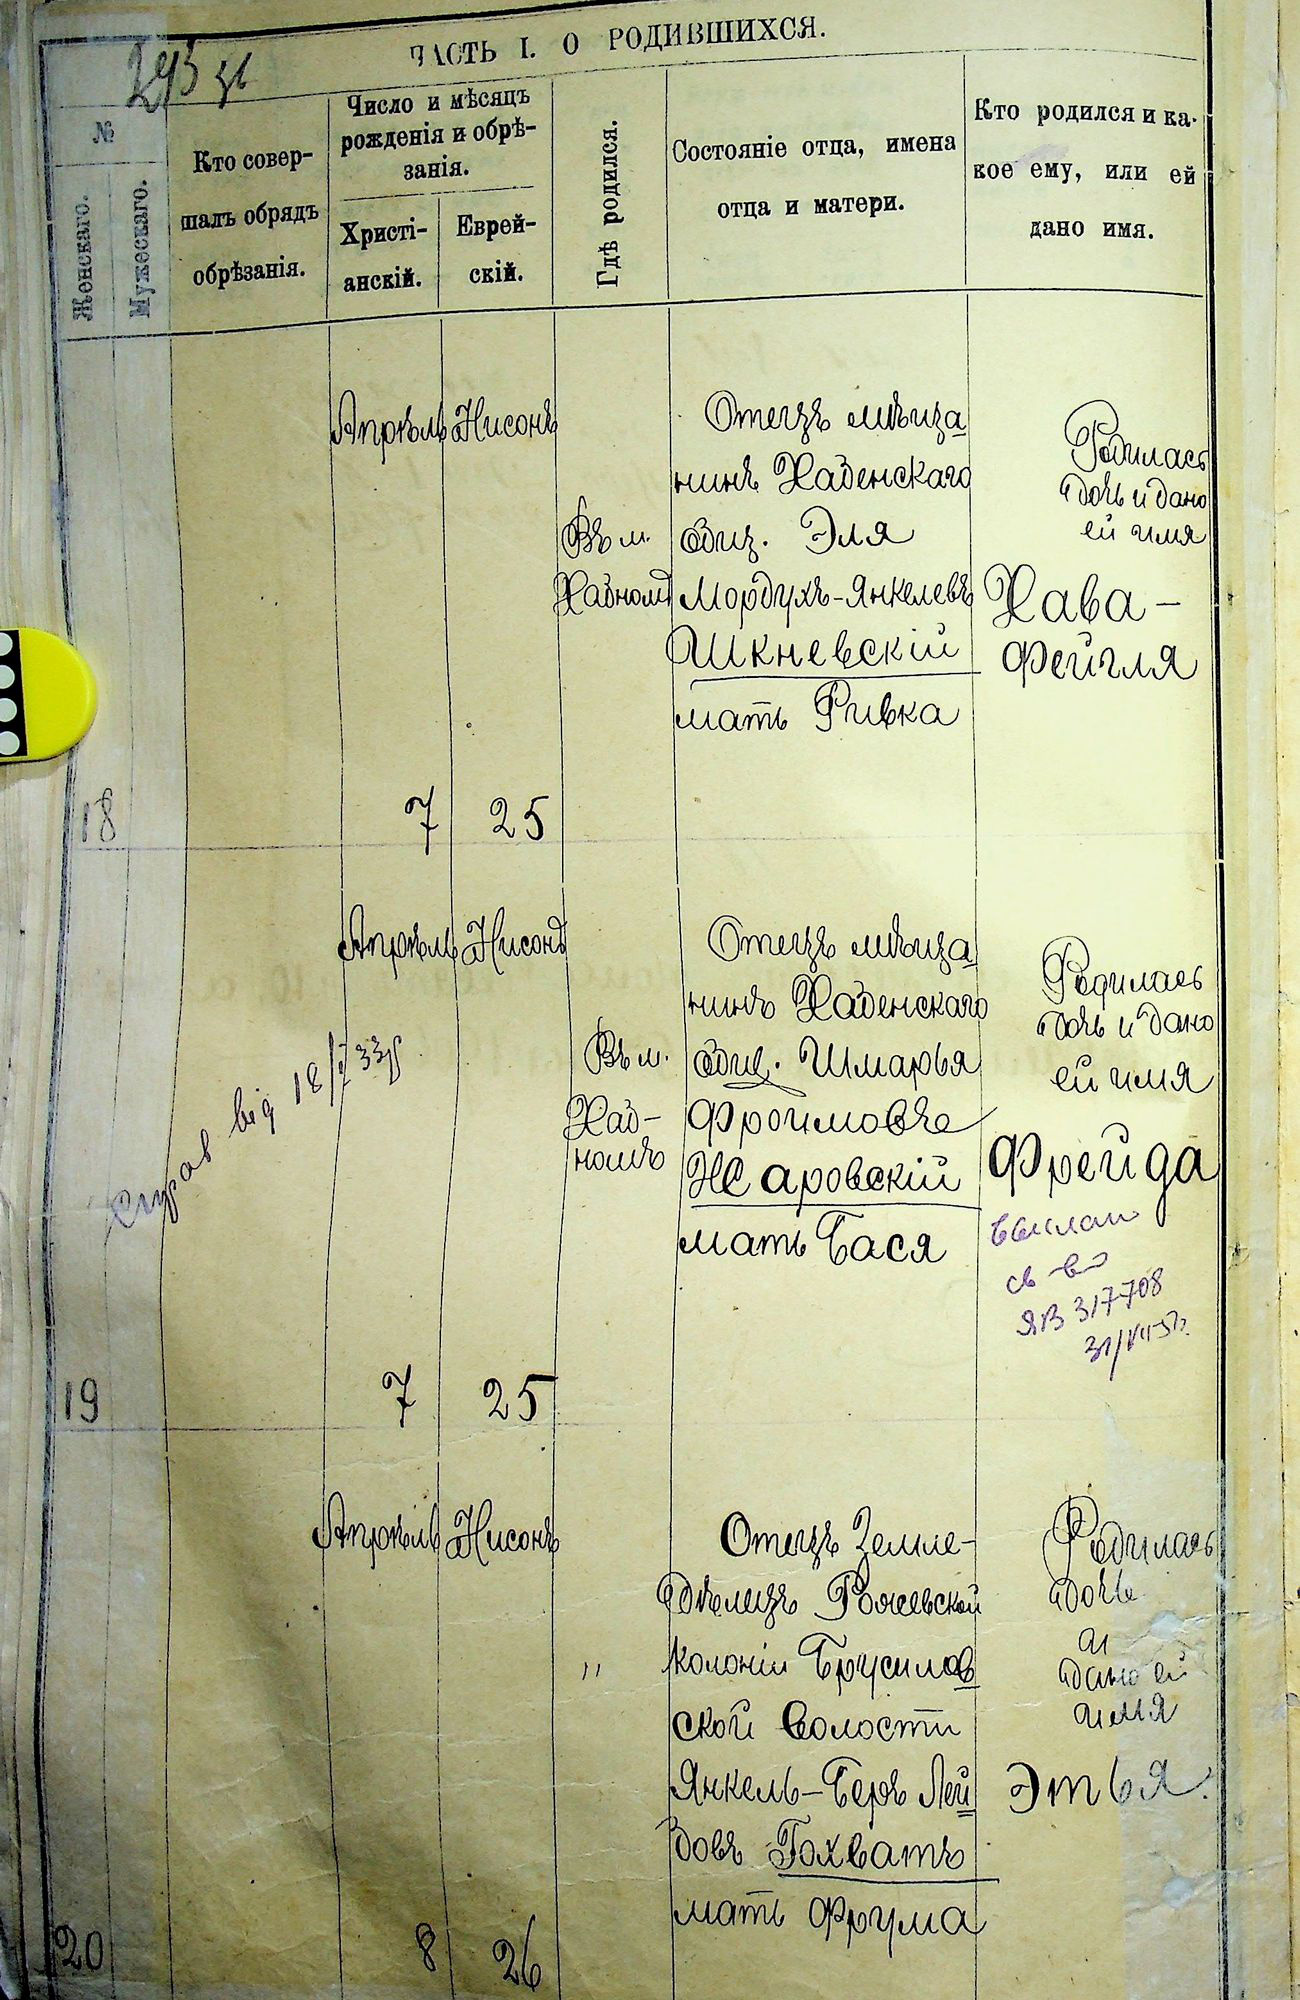 293 зв
ЧАСТЬ I. О РОДИВШИХСЯ.
№
Женскаго.
Мужескаго.
Кто совер-
шалъ обрядъ
обрѣзанія.
Число и мѣсяцъ
рожденія и обрѣ-
занія.
Христі-
анскій.
Еврей-
скій.
Гдѣ родился.
Состояніе отца, имена
отца и матери.
Кто родился и ка-
кое ему, или ей
дано имя.
18
Апрѣль
7
Нисонъ
25
Въ м.
Отецъ мѣща
нинъ Хабенскаго
общ. Эля
Мордухъ-Янкелевъ
Шкневскій
мать Ривка
Родилась
дочь и дано
ей имя
Хава-
Фейгля
19
від 18/I 33р
Апрѣль
7
Нисонъ
25
Въ м.
Хаб-
номъ
Отецъ мѣща
нинъ Хабенскаго
общ. Шмарья
Фроимовъ
Жаровскій
мать Бася
Родилась
дочь и дано
ей имя
Фрейда
св-во
ЯВ 317708
20
Апрѣль
8
Нисонъ
26
"
Отецъ Земле-
дѣлецъ Рожевской
колоніи Брусилов
ской волости
Янкель-Беръ Лей
бовъ Гохватъ
мать Фрума
Родилась
дочь
и
дано ей
имя
Этья.